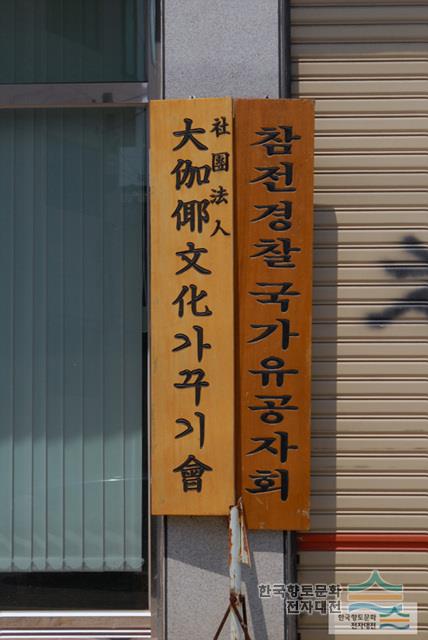 社團法人
大伽倻文化가꾸기會
참전경찰국가유공자회
한국향토문화
전자대전
한국향토문화
전자대전